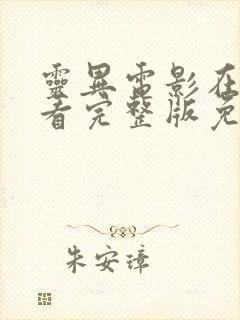 靈異電影在
看完整版免
朱安璋